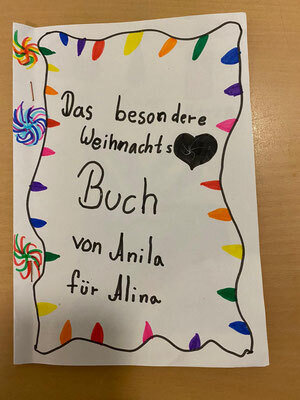 Das besondere
Weihnachts
Buch
von Anila
für Alina